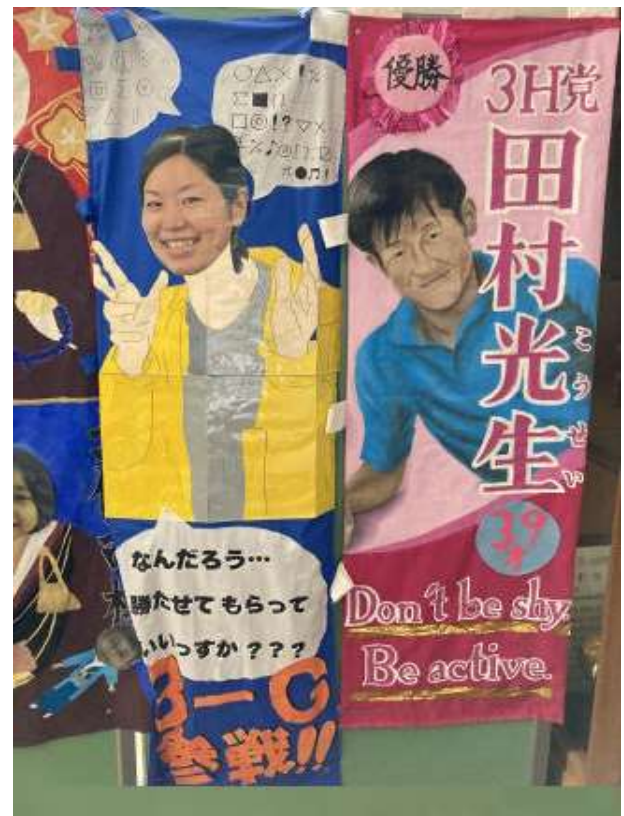 なんだろう…
勝たせてもらって
いいっすか???
3-C
参戦!!
優勝
3H党
田村光生
こうせい
39才
Don't be shy.
Be active.